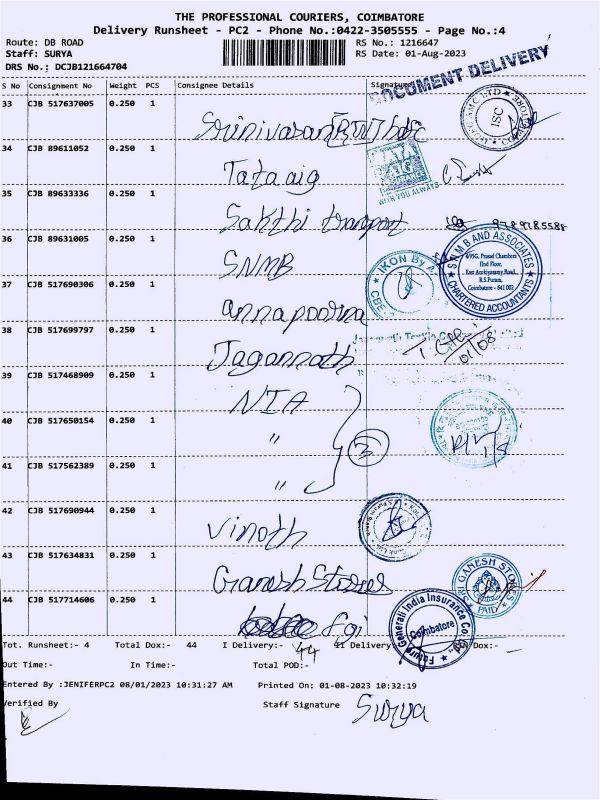 THE PROFESSIONAL COURIERS, COIMBATORE
Delivery Runsheet - PC2 - Phone No.:0422-3505555 - Page No.:4
Route: DB ROAD RS No.: 1216647
Staff: SURYA RS Date: 01-Aug-2023
DRS No.: DCJB121664704
DOCUMENT DELIVERY
S No Consignment No Weight PCS Consignee Details Signature
33 CJB 517637005 0.250 1
Srinivasan
ISC
34 CJB 89611052 0.250 1
Tata aig
TATA AIG
WITH YOU ALWAYS
35 CJB 89633336 0.250 1
Sakthi transport 9789785588
36 CJB 89631005 0.250 1
SNMB
IKON By A
CBE
S N M B AND ASSOCIATES
4/95G, Prasad Chambers
IInd Floor,
East Arokiyasamy Road,
R.S.Puram,
Coimbatore - 641 002
CHARTERED ACCOUNTANTS
37 CJB 517690306 0.250 1
annapoorna
38 CJB 517699797 0.250 1
Jagannath
01/08
39 CJB 517468909 0.250 1
NIA
40 CJB 517650154 0.250 1
"
3
1/8
41 CJB 517562389 0.250 1
"
42 CJB 517690944 0.250 1
Vinoth
43 CJB 517634831 0.250 1
Ganesh Stores
SRI GANESH STORES
PAID
44 CJB 517714606 0.250 1
fgi
Future Generali India Insurance Co.
Coimbatore
Tot. Runsheet:- 4 Total Dox:- 44 I Delivery:- 44 II Delivery Dox:-
Out Time:- In Time:- Total POD:-
Entered By :JENIFERPC2 08/01/2023 10:31:27 AM Printed On: 01-08-2023 10:32:19
Verified By Staff Signature Surya